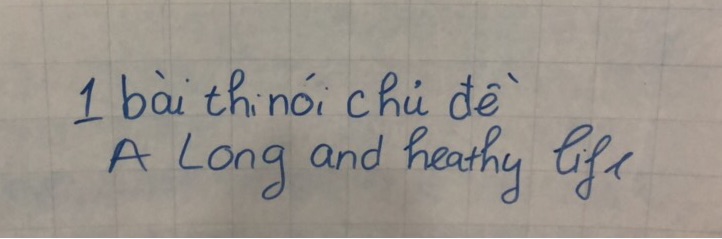 1 bài thi nói chủ đề
A Long and heathy life